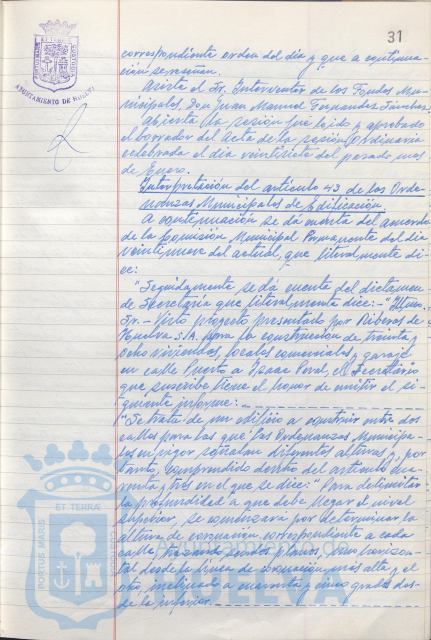 31
AYUNTAMIENTO DE HUELVA
correspondiente orden del día y que a continua-
ción se reseñan.
Asiste el Sr. Interventor de los Fondos Mu-
nicipales, Don Juan Manuel Fernandez Sánchez.
Abierta la sesión fué leído y aprobado
el borrador del acta de la sesión ordinaria
celebrada el día veintisiete del pasado mes
de Enero.
Interpretación del artículo 43 de las Orde-
nanzas Municipales de Edificación.
A continuación se dá cuenta del acuerdo
de la Comisión Municipal Permanente del día
veintinueve del actual, que literalmente di-
ce:
"Seguidamente se dá cuenta del dictamen
de Secretaría que literalmente dice:- "Iltmo.
Sr.- Visto proyecto presentado por Riberas de
Huelva S.A. para la construcción de treinta y
ocho viviendas, locales comerciales y garaje
en calle Puerto a Isaac Peral, el Secretario
que suscribe tiene el honor de emitir el si-
guiente informe:
"Se trata de un edificio a construir entre dos
calles para las que las Ordenanzas Municipa-
les en vigor señalan diferentes alturas y, por
tanto, comprendido dentro del artículo cua-
renta y tres en el que se dice:" Para delimitar
la profundidad a que debe llegar el nivel
superior, se comenzará por determinar la
altura de coronación correspondiente a cada
calle, trazando sendos planos, uno horizon-
tal desde la línea de coronación más alta y el
otro, inclinado a cuarenta y cinco grados des-
de la inferior.
ET TERRAE
PORTUS MARIS
HUELVA